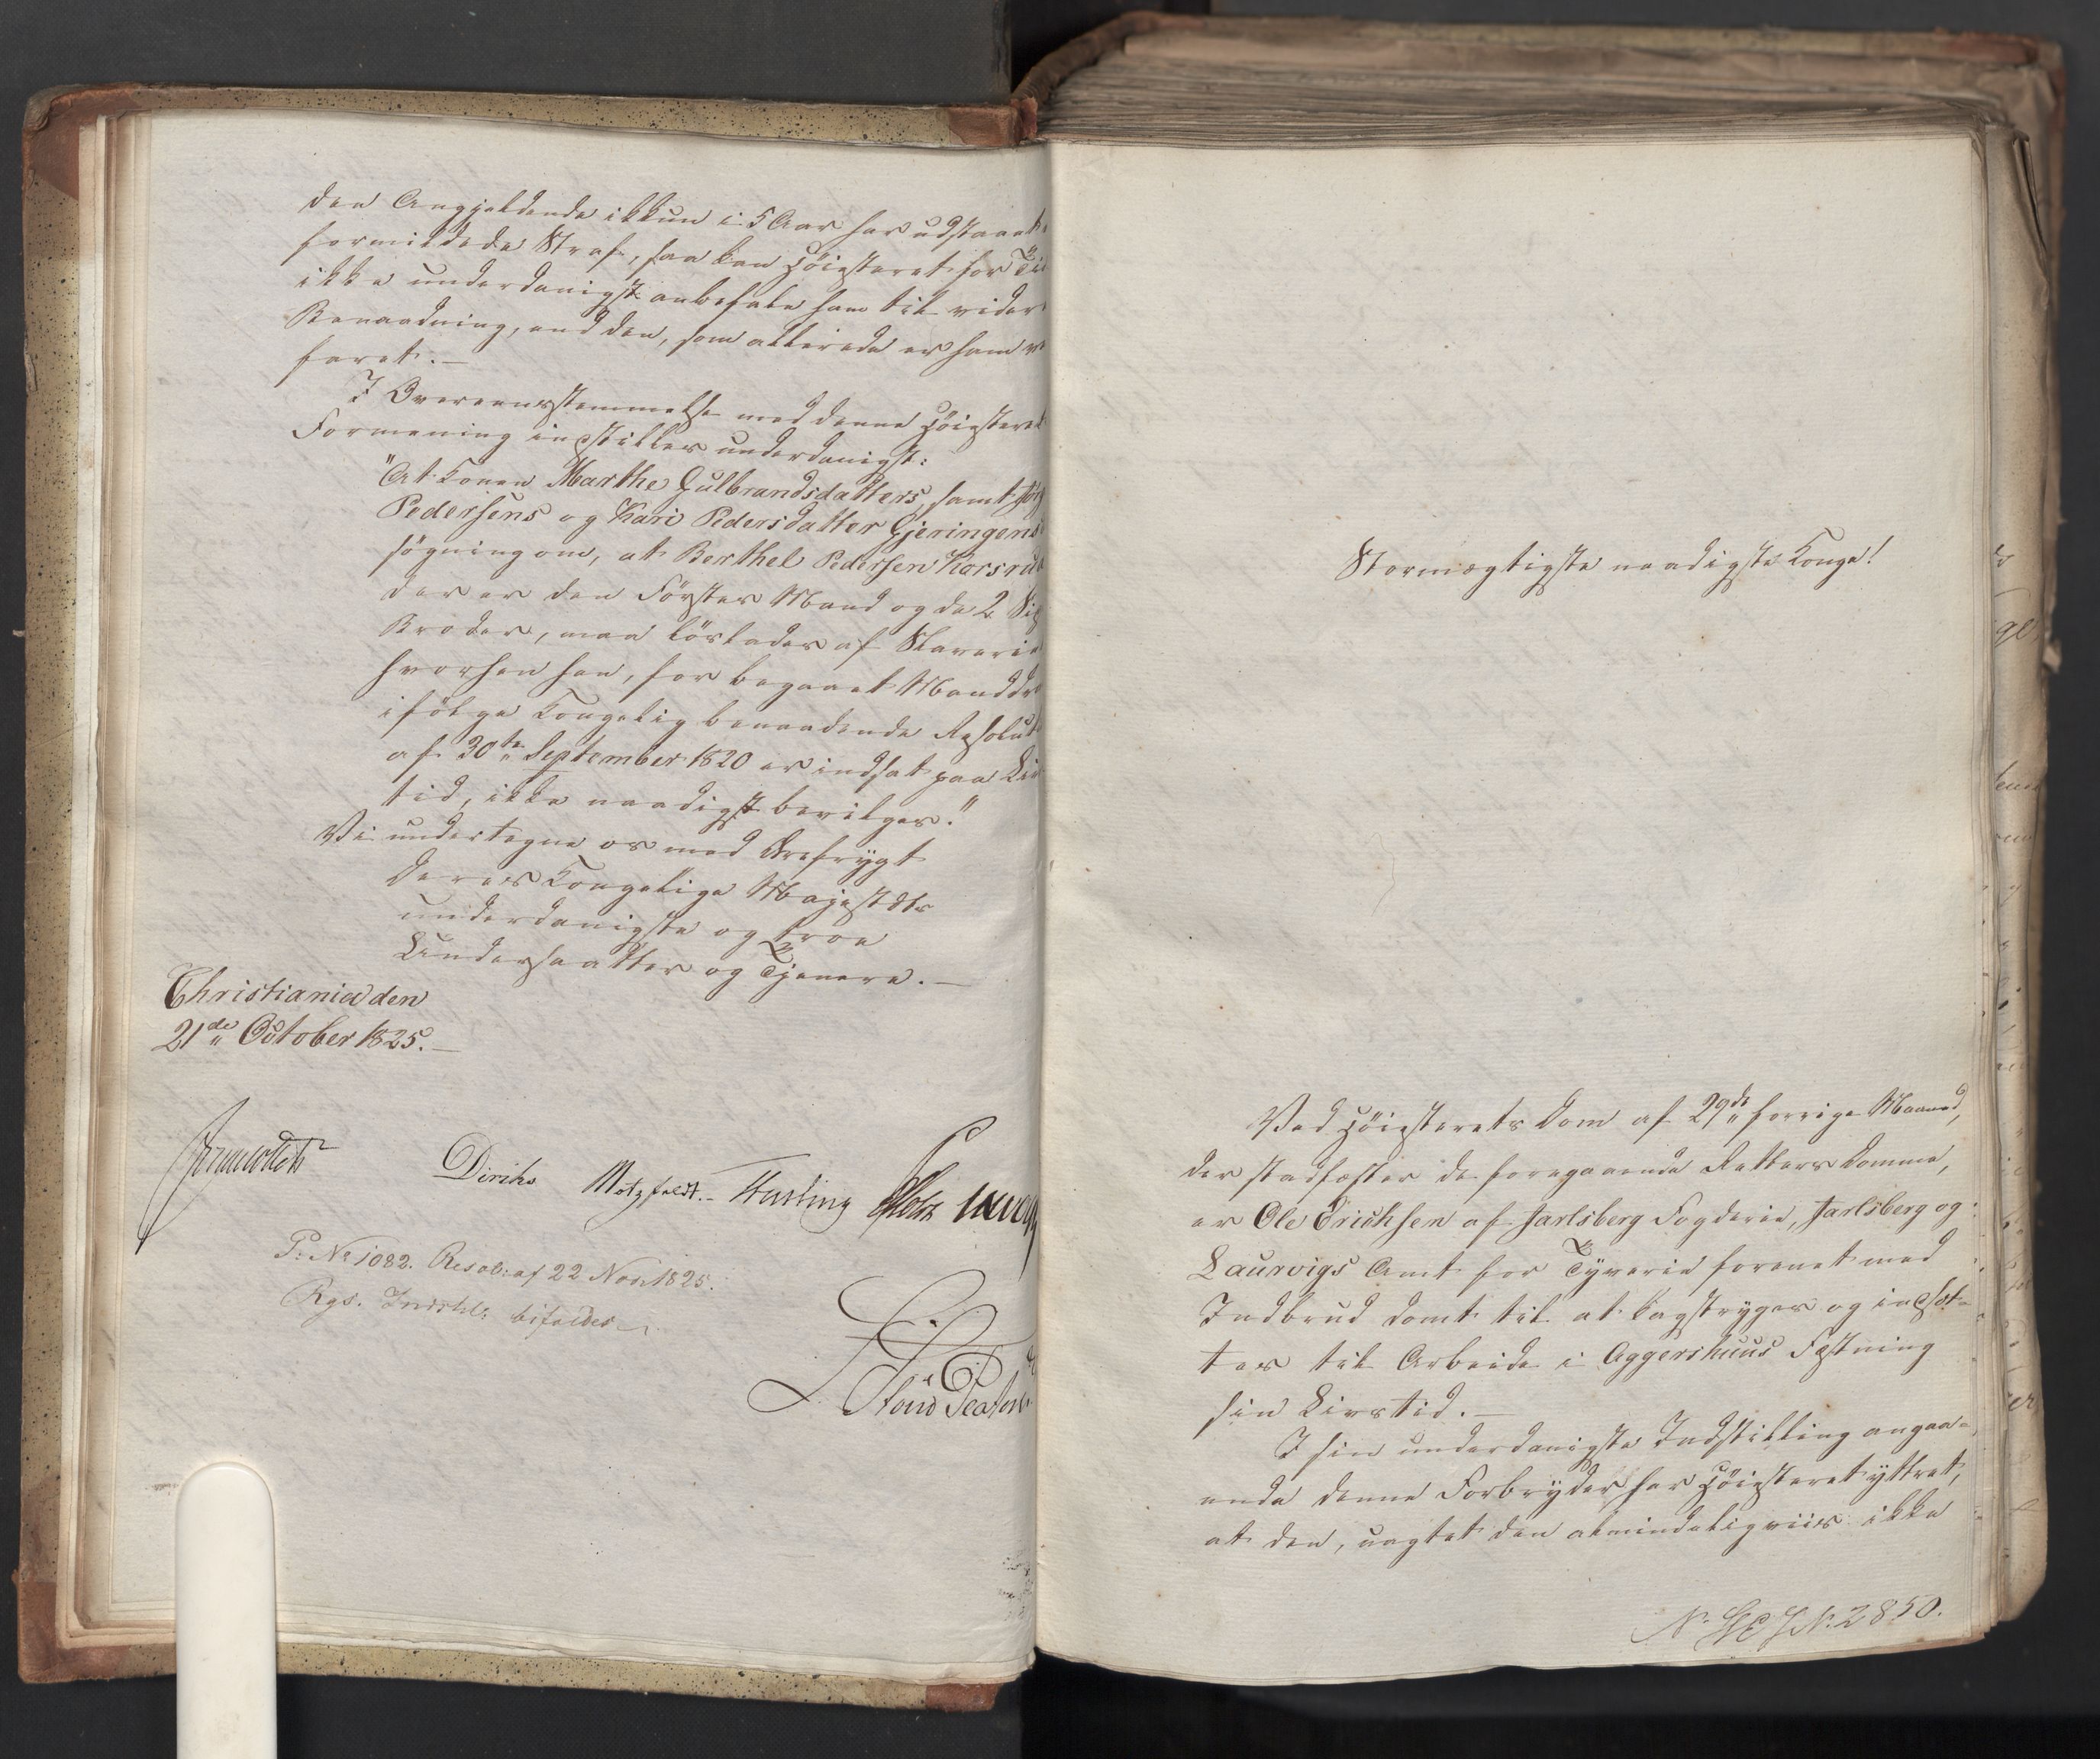 den Angjældende ikkun i 5 Aar har udstaaet
formildede Straf, saa kan Höiesteret for
ikke underdanigst anbefale ham til
Benaadning, end den, som allerede er ham
faret.—
I Overeensstemmelse med denne
Formening indstilles underdanigst:
"At Konen Marthe Gulbrandsdatters, samt
Pedersens og Kari Pedersdatter Gjeringens
søgning om, at Berthel Pedersen
der er den Förstes Mand og de 2
Broder, maa löslades af
hvorhen han, for begaaet
ifölge Kongelig benaadende
af 30te September 1820 er indsat paa
tid, ikke naadigst bevilges."
Vi undertegne os med Ærefrygt
Deres Kongelige Majestæts
underdanigste og troe
Undersaatter og Tjenere.—
Christiania den
21de October 1825.—
Diriks Motzfeldt.
P: No 1082. Resol: af 22 Nov: 1825.
Rgs. Indstil: bifaldes
Stormægtigste naadigste Konge!
Ved Höiesterets Dom af 29de forrige Maaned,
der stadfæster de foregaaende Retters Domme,
er Ole Erichsen af Jarlsberg Fogderie, Jarlsberg og
Laurvigs Amt for Tyverie forenet med
Indbrud dömt til at kagstryges og indsæt-
tes til Arbeide i Aggershuus Fæstning
sin Livstid.—
I sin underdanigste Indstilling angaa-
ende denne Forbryder har Höiesteret yttret,
at den, uagtet den almindeligviis ikke
No 2850.